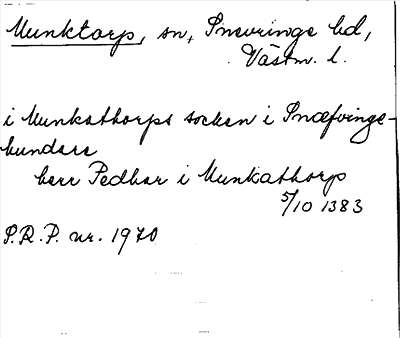 Munktorp, sn, Snevringe hd,
Västm. l.
i Munkathorps socken i Snæfringe-
hundare
herr Pedhar i Munkathorp
5/10 1383
S.R.P. nr. 1970